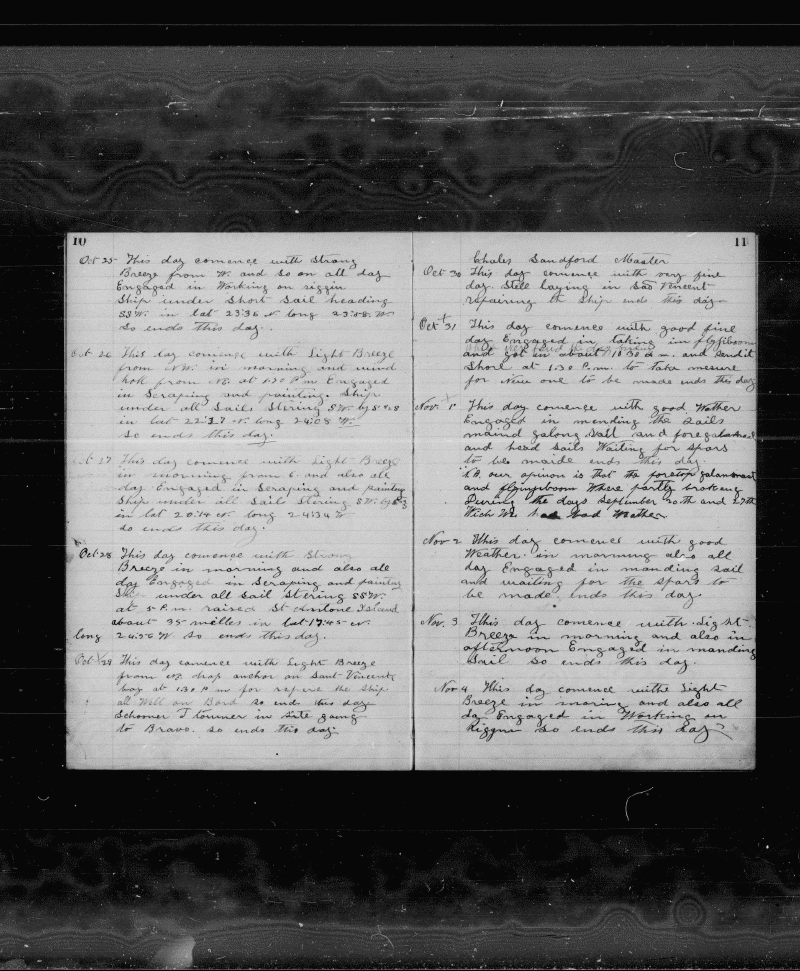 10
Oct 25 This day comence with Strong
Breeze from W. and so on all day
Engaged in Working on riggin
Ship under Short Sail heading
SSW. in lat 23:36 N long 23:58 W.
So ends this day.
Oct 26 This day comence with Light Breeze
from NW. in morning and wind
from NE. at 1.30 P.m Engaged
in Scraping and painting. Ship
under all Sails Stering SW. by S
in lat 22:37 N. long 24:08 W.
So ends this day.
Oct 27 This day comence with Light Breeze
in morning from E and also all
day Engaged in Scraping and painting
Ship under all Sails Stering SW. by S
in lat 20:14 N. long 24:34 W
So ends this day.
Oct 28 This day comence with Strong
Breeze in morning and also all
day Engaged in Scraping and painting
Ship under all Sail Stering SSW.
at 5 P.m. raised St Antone Island
about 35 milles in lat 17:45 N.
long 24:56 W. So ends this day.
Oct 29 This day comence with Light Breeze
from NE drop anchor on Saint Vincente
bay at 1.30 P m for repere the Ship
all Well on Bord so ends this day
Schooner in site going
to Brava. so ends this day
11
Chales Sandford Master
Oct 30 This day comence with very fine
day. Still laying in Saõ Vincent
repairing the Ship ends this day
Oct 31 This day comence with good fine
day Engaged in taking in flyjiboom
and got in about 10 30 a.m. and Sendit
Shore at 1.30 P.m. to take mesure
for New one to be made ends this day
Nov. 1st This day comence with good Wether
Engaged in mending the Sails
maind galong Sail and
and head Sails Waiting for Spars
to be maide ends this day.
our opinon is that the foretop galanmast
and flyingiboom Where partly broking
During the days September 20th and 27th
Wich We had Bad Weather
Nov 2 This day comence with good
Weather in morning also all
day Engaged in manding Sail
and waiting for the Spars to
be made ends this day
Nov. 3 This day comence with Light
Breeze in morning and also in
afternoon Engaged in manding
Sail so ends this day.
Nov 4 This day comence withe Light
Breeze in moring and also all
da Engaged in Working on
Riggin so ends this day